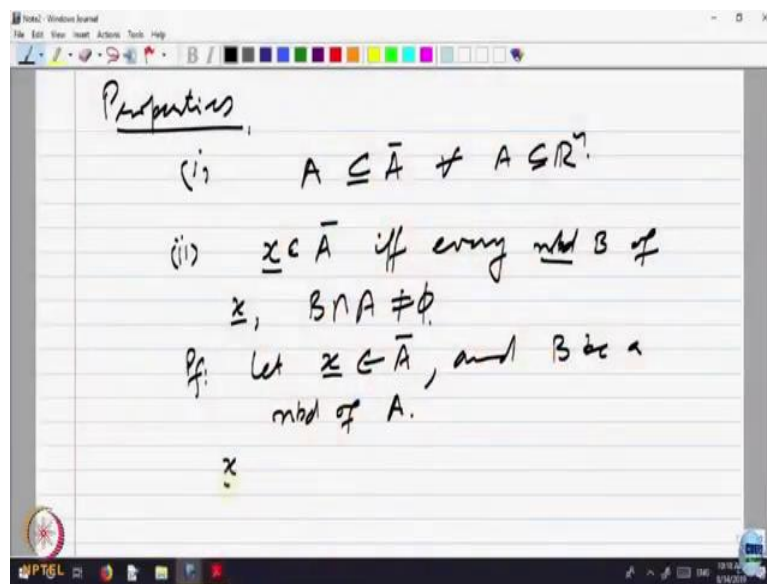 Note2 - Windows Journal
File Edit View Insert Actions Tools Help
Properties
(i) A ⊆ Ā ∀ A ⊆ ℝⁿ.
(ii) x ∈ Ā iff every nbd B of
x, B ∩ A ≠ ϕ.
Pf: Let x ∈ Ā, and B be a
nbd of A.
x
NPTEL
ENG
8/14/2019